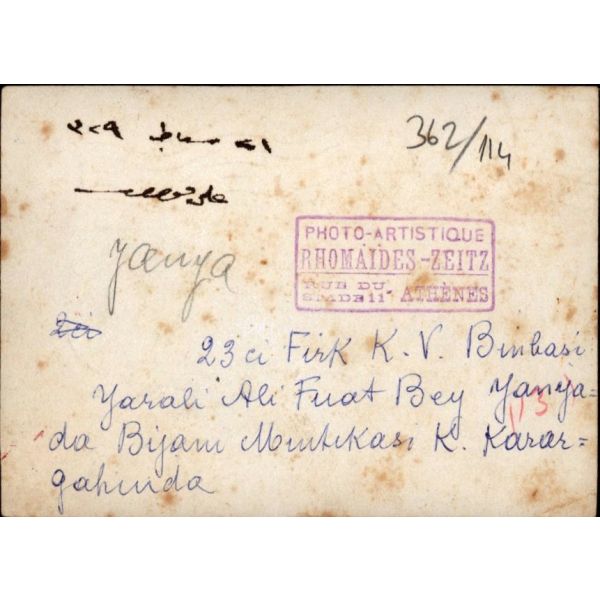 362/114
PHOTO-ARTISTIQUE
RHOMAÏDES-ZEITZ
RUE DU
STADE 11, ATHÈNES
Yanya
23 ci Fırk K. V. Binbası
Yaralı Ali Fuat Bey Yanya=
da Bijanı Mıntıkası K. Karar=
gahında